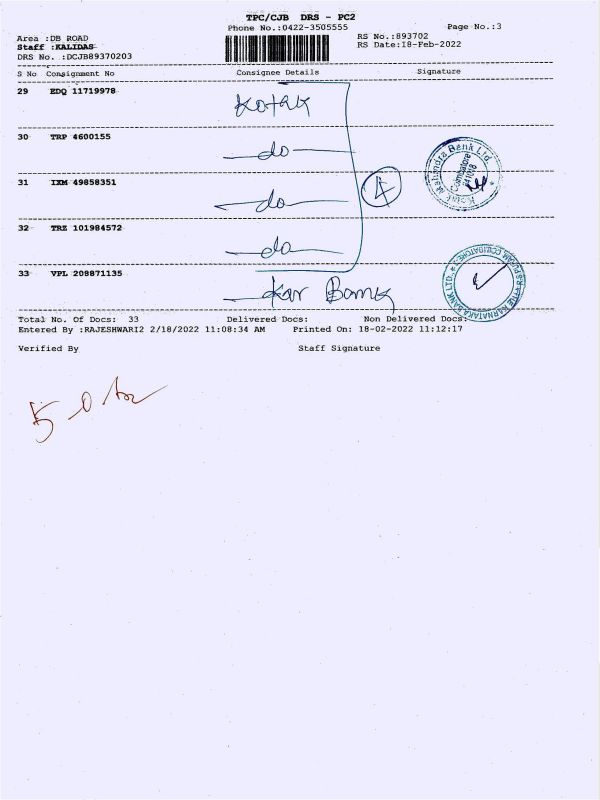 TPC/CJB DRS - PC2
Phone No.:0422-3505555
Page No.:3
Area :DB ROAD
RS No.:893702
Staff :KALIDAS
RS Date:18-Feb-2022
DRS No. :DCJB89370203
S No Consignment No Consignee Details Signature
29 EDQ 11719978 Kotak
30 TRP 4600155 do
31 IXM 49858351 do
4
Kotak Mahindra Bank Ltd. Coimbatore 641018
32 TRZ 101984572 do
33 VPL 208871135 Kar Bank
THE KARNATAKA BANK LTD. R.S.PURAM COIMBATORE
Total No. Of Docs: 33 Delivered Docs: Non Delivered Docs:
Entered By :RAJESHWARI2 2/18/2022 11:08:34 AM Printed On: 18-02-2022 11:12:17
Verified By Staff Signature